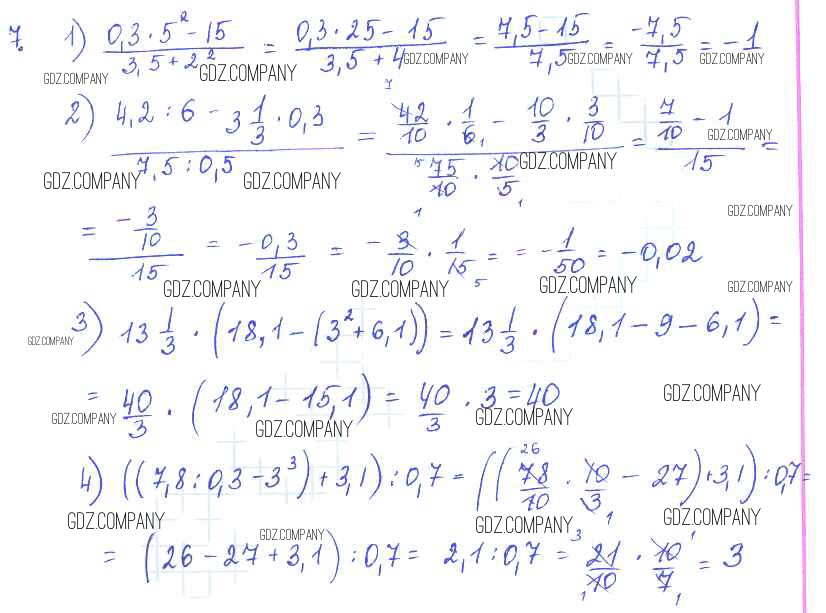 7. 1) (0,3·5² − 15)/(3,5 + 2²) = (0,3·25 − 15)/(3,5 + 4) = (7,5 − 15)/7,5 = −7,5/7,5 = −1
GDZ.COMPANY GDZ.COMPANY GDZ.COMPANY GDZ.COMPANY GDZ.COMPANY
2) (4,2 : 6 − 3 1/3 · 0,3)/(7,5 : 0,5) = (42/10 · 1/6 − 10/3 · 3/10)/(75/10 · 10/5) = (7/10 − 1)/15 =
GDZ.COMPANY GDZ.COMPANY GDZ.COMPANY GDZ.COMPANY
= (−3/10)/15 = −0,3/15 = −3/10 · 1/15 = = −1/50 = −0,02
GDZ.COMPANY GDZ.COMPANY GDZ.COMPANY GDZ.COMPANY GDZ.COMPANY
3) 13 1/3 · (18,1 − (3² + 6,1)) = 13 1/3 · (18,1 − 9 − 6,1) =
GDZ.COMPANY
= 40/3 · (18,1 − 15,1) = 40/3 · 3 = 40
GDZ.COMPANY GDZ.COMPANY GDZ.COMPANY GDZ.COMPANY
4) ((7,8 : 0,3 − 3³) + 3,1) : 0,7 = ((78/10 · 10/3 − 27) + 3,1) : 0,7 =
GDZ.COMPANY GDZ.COMPANY GDZ.COMPANY GDZ.COMPANY
= (26 − 27 + 3,1) : 0,7 = 2,1 : 0,7 = 21/10 · 10/7 = 3